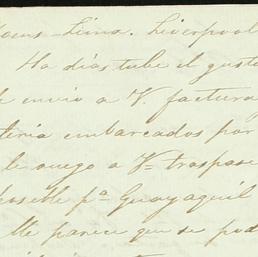 Lima. Liverpool
Ha dias tube el gusto
envio a V. factura
embarcados por
le ruego a V= traspase
posible pª Guayaquil
Me parece que se pod